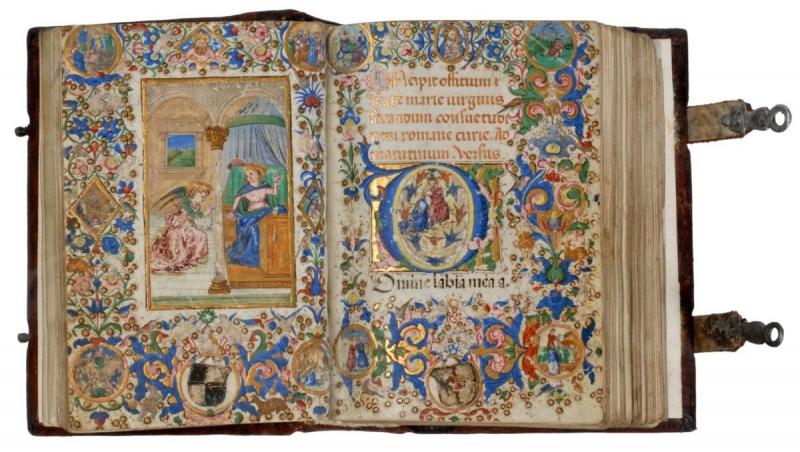 INcipit officium b
eate marie uirginis
secundum consuetudi
nem romane curie. Ad
matutinum. Versus.
Domine labia mea a.